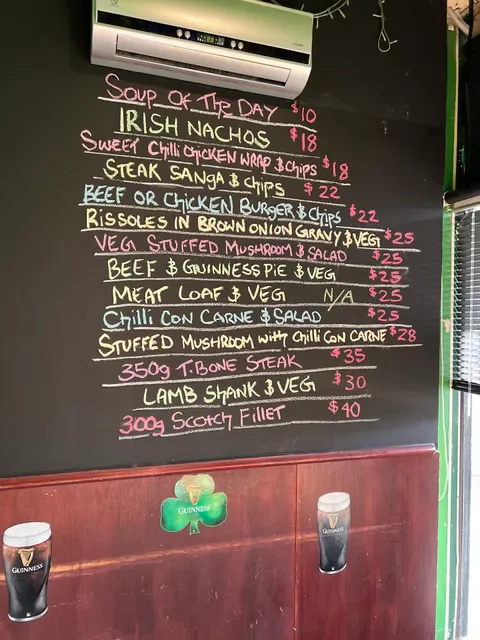 Soup Of The Day $10
IRISH NACHOS $18
Sweet Chilli Chicken Wrap & Chips $18
Steak Sanga & Chips $22
Beef or Chicken Burger & Chips $22
Rissoles in Brown Onion Gravy & Veg $25
Veg Stuffed Mushroom & Salad $25
Beef & Guinness Pie & Veg $25
Meat Loaf & Veg N/A $25
Chilli Con Carne & Salad $25
Stuffed Mushroom with Chilli Con Carne $28
350g T.Bone Steak $35
Lamb Shank & Veg $30
300g Scotch Fillet $40
GUINNESS
GUINNESS
GUINNESS